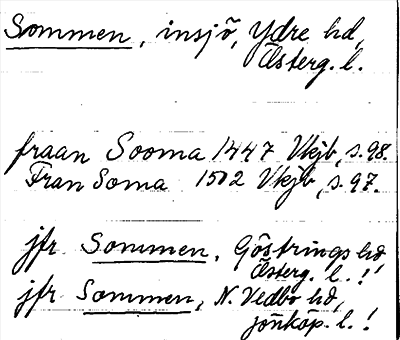 Sommen, insjö, Ydre hd,
Österg. l.
fraan Sooma 1447 Vkjb, s. 98.
Fran Soma 1502 Vkjb, s. 97.
jfr Sommen, Göstrings hd
Österg. l. !
jfr Sommen, N. Vedbo hd,
Jönköp. l. !